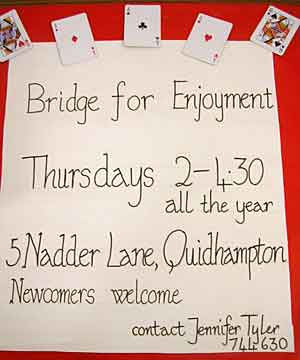 Bridge for Enjoyment
Thursdays 2-4.30
all the year
5 Nadder Lane, Quidhampton
Newcomers welcome
contact Jennifer Tyler
744630